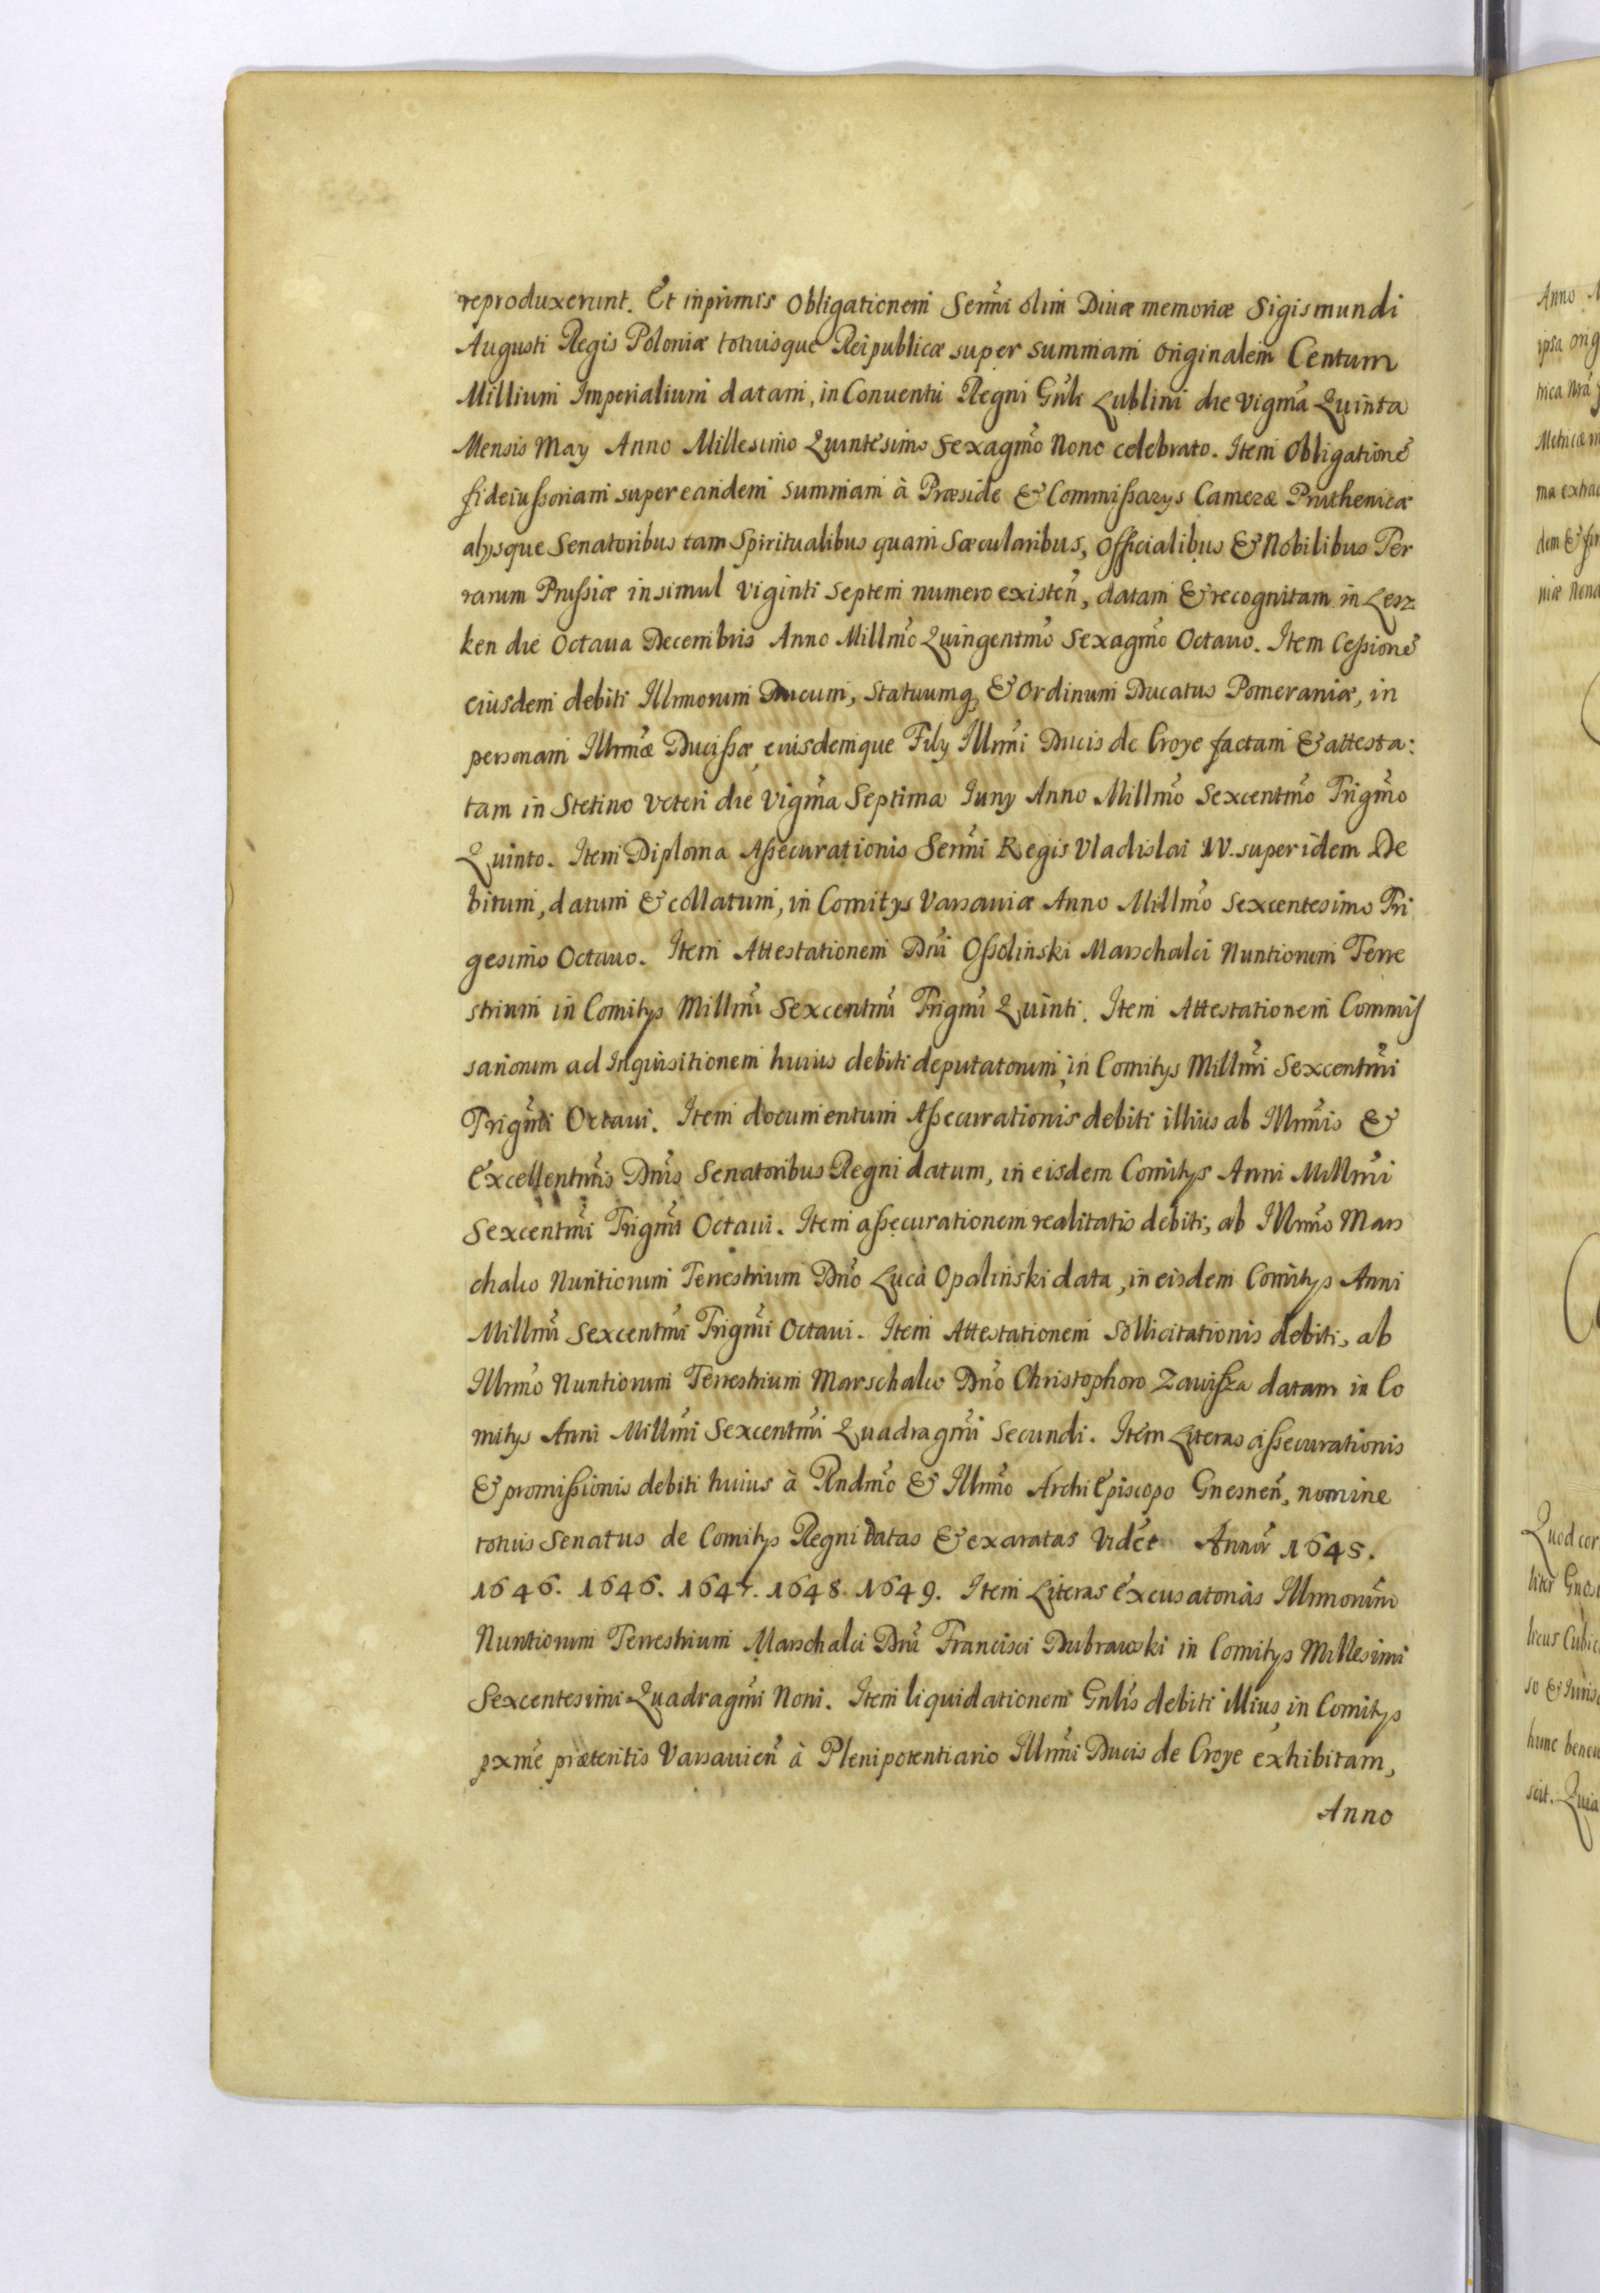 reproduxerunt. Et inprimis Obligationem Serm̃i olim Divæ memoriæ Sigismundi
Augusti Regis Poloniæ totiusque Reipublicæ super summam originalem Centum
Millium Imperialium datam, in Conventu Regni Gñli Lublini die vigm̃a Quinta
Mensis May Anno Millesimo Quintesimo Sexagm̃o Nono celebrato. Item Obligationẽ
fideiußoriam super eandem summam à Præside & Commißarys Cameræ Pruthenicæ
alysque Senatoribus tam Spiritualibus quam Sæcularibus, Officialibus & Nobilibus Ter
rarum Prußiæ insimul viginti septem numero existeñ, datam & recognitam in Lesz
ken die Octava Decembris Anno Millm̃o Quingentm̃o Sexagm̃o Octavo. Item Ceßionẽ
eiusdem debiti Illmorum Ducum, Statuumq, & Ordinum Ducatus Pomeraniæ, in
personam Illmæ Ducißæ, eiusdemque Fily Illm̃i Ducis de Croye factam & attesta:
tam in Stetino veteri die vigm̃a Septima Iuny Anno Millm̃o Sexcentm̃o Trigm̃o
Quinto. Item Diploma Aßecurationis Serm̃i Regis Vladislai IV. super idem De
bitum, datum & collatum, in Comitys Varsaviæ Anno Millm̃o Sexcentesimo Tri
gesimo Octavo. Item Attestationem Dñi Oßolinski Marschalci Nuntiorum Terre
strium in Comitys Millm̃i Sexcentm̃i Trigm̃i Quinti. Item Attestationem Commis
sariorum ad Inquisitionem huius debiti deputatorum, in Comitys Millm̃i Sexcentm̃i
Trigm̃i Octavi. Item documentum Aßecurationis debiti illius ab Illm̃is &
Excellentm̃is Dñis Senatoribus Regni datum, in eisdem Comitys Anni Millm̃i
Sexcentm̃i Trigm̃i Octavi. Item aßecurationem realitatis debiti, ab Illm̃o Mars
chalco Nuntiorum Terrestrium Dño Luca Opalinski data, in eisdem Comitys Anni
Millm̃i Sexcentm̃i Trigm̃i Octavi. Item Attestationem Sollicitationis debiti, ab
Illmo Nuntiorum Terrestrium Marschalco Dño Christophoro Zawißza datam in Co
mitys Anni Millm̃i Sexcentm̃i Quadragm̃i Secundi. Item Literas aßecurationis
& promißionis debiti huius à Rndm̃o & Illm̃o Archi Episcopo Gnesneñ, nomine
totius Senatus de Comitys Regni datas & exaratas Vidẽt Annor̃ 1645.
1646. 1646. 1647. 1648. 1649. Item Literas Excusatorias Illmorum̃
Nuntiorum Terrestrium Marschalci Dñi Francisci Dubrawski in Comitys Millesimi
Sexcentesimi Quadragm̃i Noni. Item liquidationem Gñlis debiti illius in Comitys
pxmẽ præteritis Varsavieñ à Plenipotentiario Illm̃i Ducis de Croye exhibitam,
Anno
Anno
ipsa orig
trica Nrã
ma extra
dem & fir
niæ Nona
Quod cor
liter Gnos
so & Iuris
hunc benev
scit. Quia